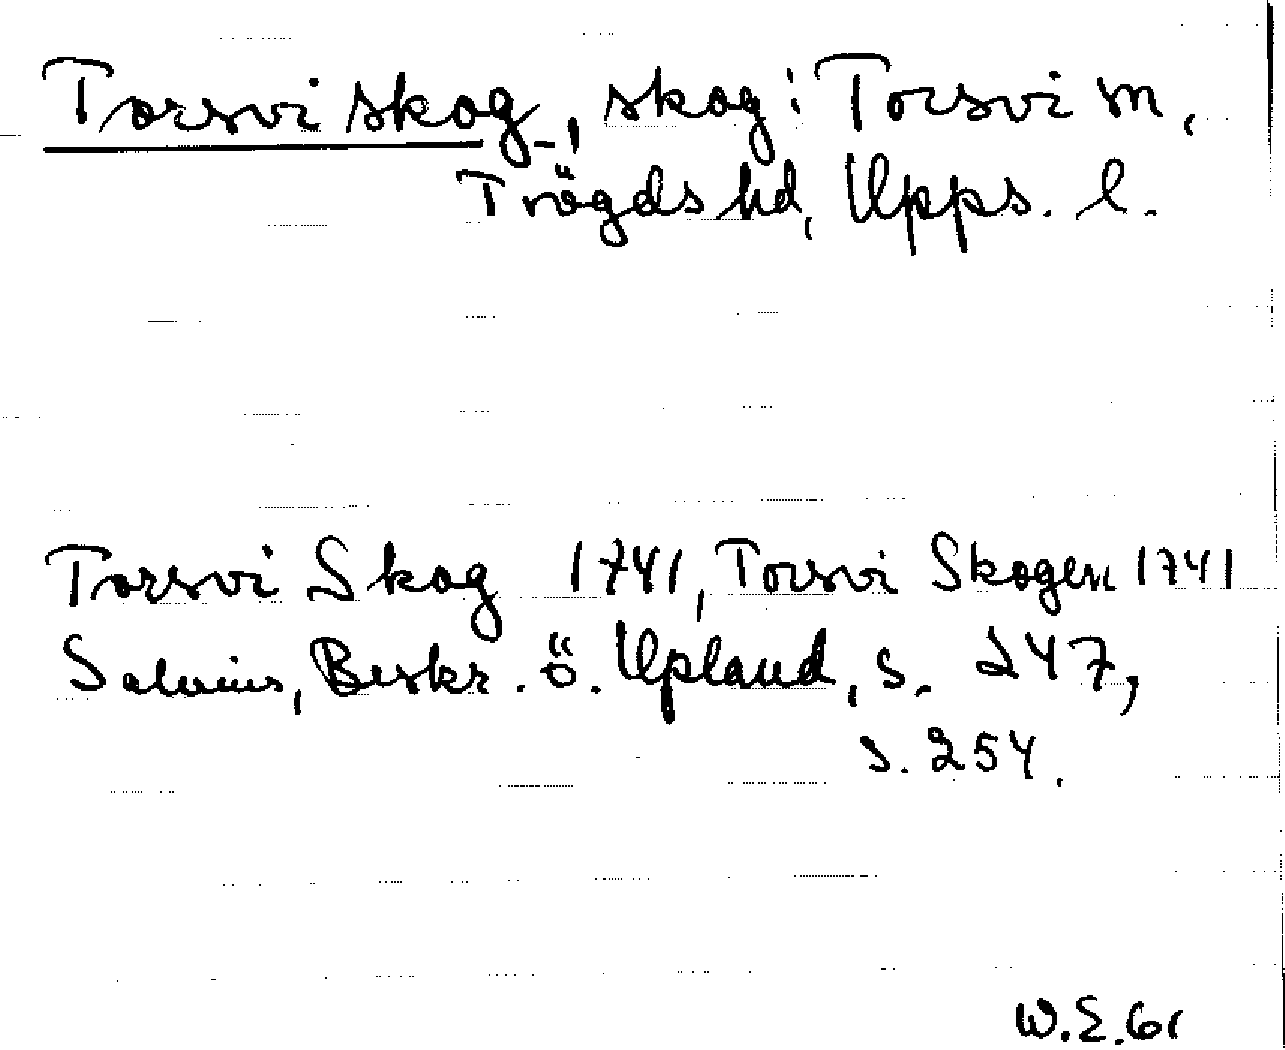 Torsvi skog, skog i Torsvi sn,
Trögds hd, Upps. l.
Torsvi Skog 1741, Torsvi Skogen 1741
Salvius, Beskr. ö. Upland, s. 247,
s. 254.
W.E. 61